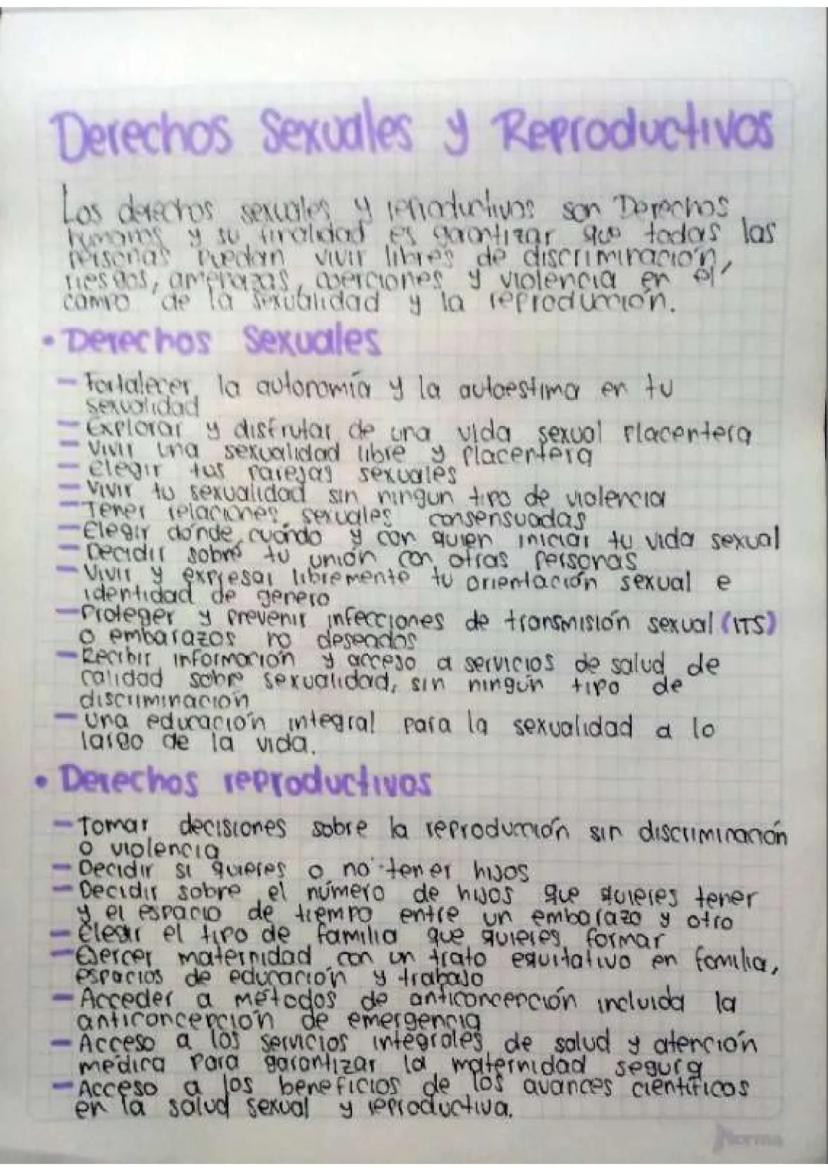 Derechos Sexuales y Reproductivos
Los derechos sexuales y reproductivos son Derechos
humanos y su finalidad es garantizar que todas las
personas puedan vivir libres de discriminación,
riesgos, amenazas, coerciones y violencia en el
campo de la sexualidad y la reproducción.
• Derechos Sexuales
— Fortalecer la autonomía y la autoestima en tu
sexualidad
— Explorar y disfrutar de una vida sexual placentera
— Vivir una sexualidad libre y placentera
— Elegir tus parejas sexuales
— Vivir tu sexualidad sin ningun tipo de violencia
— Tener relaciones sexuales consensuadas
— Elegir dónde, cuándo y con quien iniciar tu vida sexual
— Decidir sobre tu unión con otras personas
— Vivir y expresar libremente tu orientación sexual e
identidad de genero
— Proteger y prevenir infecciones de transmisión sexual (ITS)
o embarazos no deseados
— Recibir información y acceso a servicios de salud de
calidad sobre sexualidad, sin ningún tipo de
discriminación
— Una educación integral para la sexualidad a lo
largo de la vida.
• Derechos reproductivos
— Tomar decisiones sobre la reproducción sin discriminación
o violencia
— Decidir si quieres o no tener hijos
— Decidir sobre el número de hijos que quieres tener
y el espacio de tiempo entre un embarazo y otro
— Elegir el tipo de familia que quieres formar
— Ejercer maternidad con un trato equitativo en familia,
espacios de educación y trabajo
— Acceder a métodos de anticoncepción incluida la
anticoncepción de emergencia
— Acceso a los servicios integrales de salud y atención
médica para garantizar la maternidad segura
— Acceso a los beneficios de los avances científicos
en la salud sexual y reproductiva.
Norma